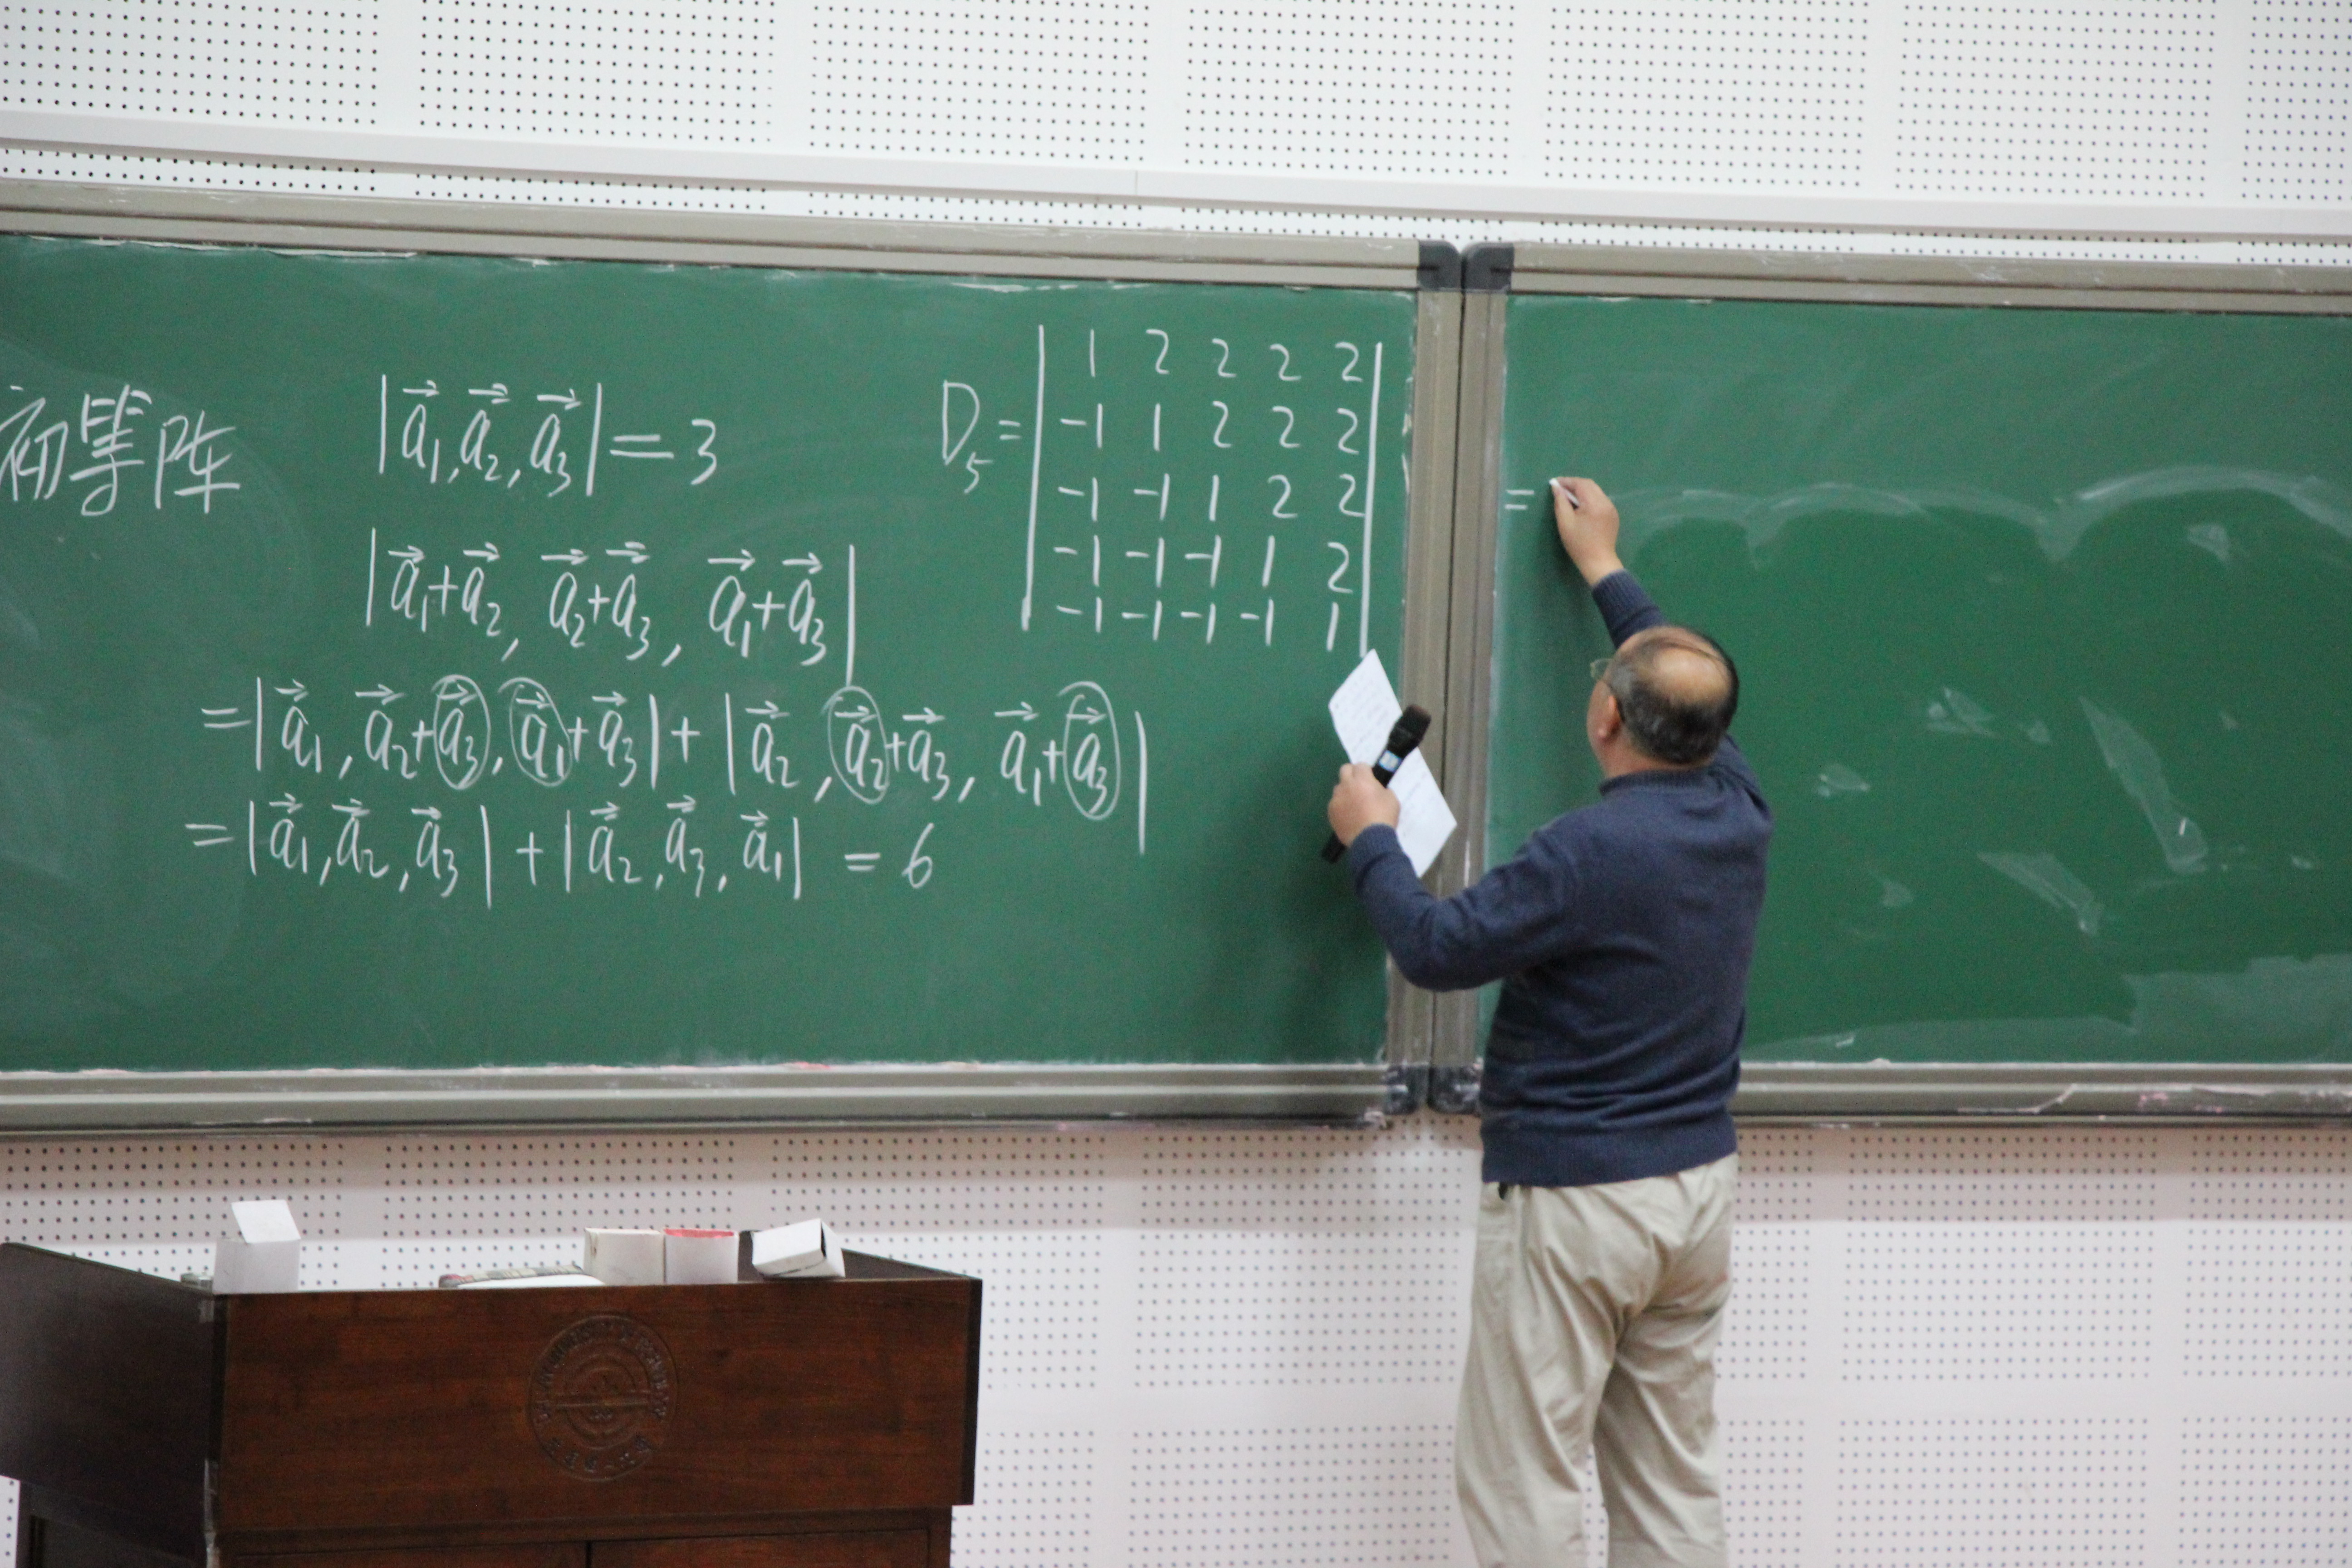 初等阵
|a⃗₁, a⃗₂, a⃗₃| = 3
|a⃗₁+a⃗₂, a⃗₂+a⃗₃, a⃗₁+a⃗₃|
=|a⃗₁, a⃗₂+a⃗₃, a⃗₁+a⃗₃| + |a⃗₂, a⃗₂+a⃗₃, a⃗₁+a⃗₃|
=|a⃗₁, a⃗₂, a⃗₃| + |a⃗₂, a⃗₃, a⃗₁| = 6
D₅ =
| 1 2 2 2 2 |
| -1 1 2 2 2 |
| -1 -1 1 2 2 |
| -1 -1 -1 1 2 |
| -1 -1 -1 -1 1 |
=